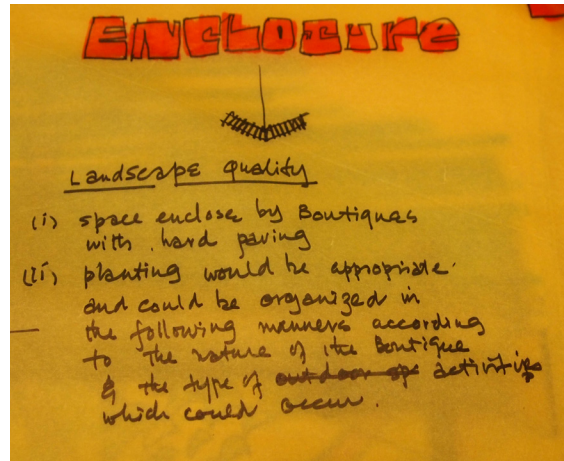 ENCLOSURE
Landscape Quality
(i) space enclose by Boutiques
with hard paving
(ii) planting would be appropriate.
and could be organized in
the following manners according
to the nature of the Boutique
& the type of outdoor sp activities
which could occur.